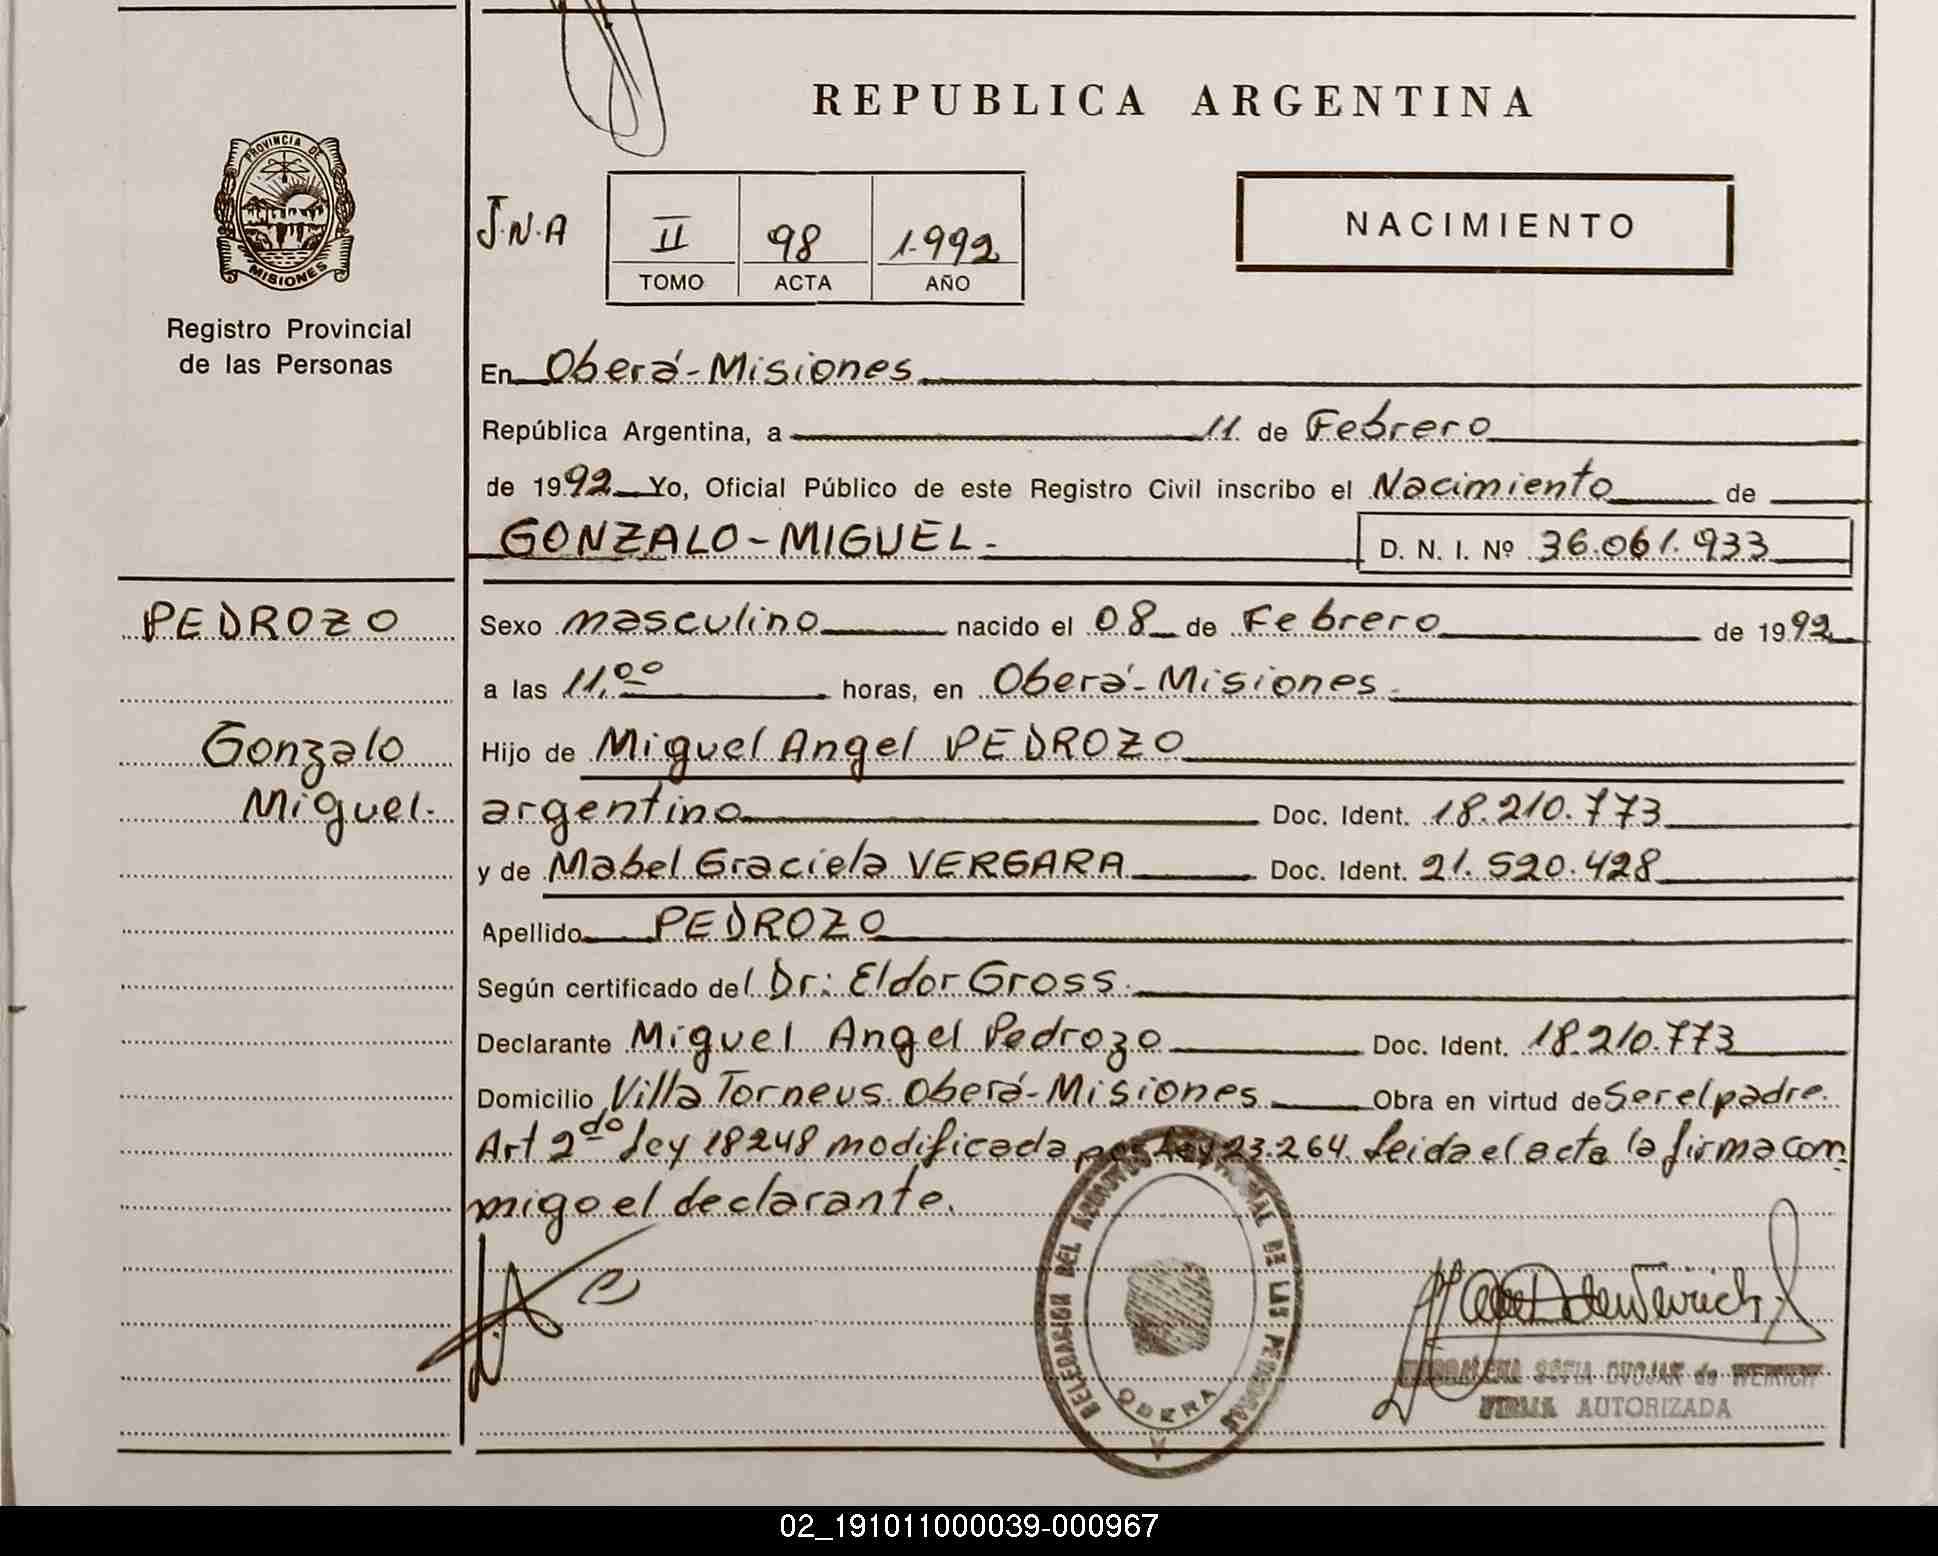 REPUBLICA ARGENTINA
PROVINCIA DE
MISIONES
Registro Provincial
de las Personas
J.N.A
II 98 1.992
TOMO ACTA AÑO
NACIMIENTO
En Oberá-Misiones
República Argentina, a 11 de Febrero
de 1992 Yo, Oficial Público de este Registro Civil inscribo el Nacimiento de
GONZALO-MIGUEL- D. N. I. Nº 36.061.933
PEDROZO
Gonzalo
Miguel.
Sexo masculino nacido el 08 de Febrero de 1992
a las 11,00 horas, en Oberá-Misiones
Hijo de Miguel Angel PEDROZO
argentino Doc. Ident. 18.210.773
y de Mabel Graciela VERGARA Doc. Ident. 21.520.428
Apellido PEDROZO
Según certificado del Dr: Eldor Gross
Declarante Miguel Angel Pedrozo Doc. Ident. 18.210.773
Domicilio Villa Torneus Oberá-Misiones Obra en virtud de Ser el padre.
Art 2do ley 18248 modificada por ley 23.264. leida el acta la firma con
migo el declarante.
DELEGACION DEL REGISTRO PROVINCIAL DE LAS PERSONAS
OBERA
SOFIA de WEIRICH
FIRMA AUTORIZADA
02_191011000039-000967